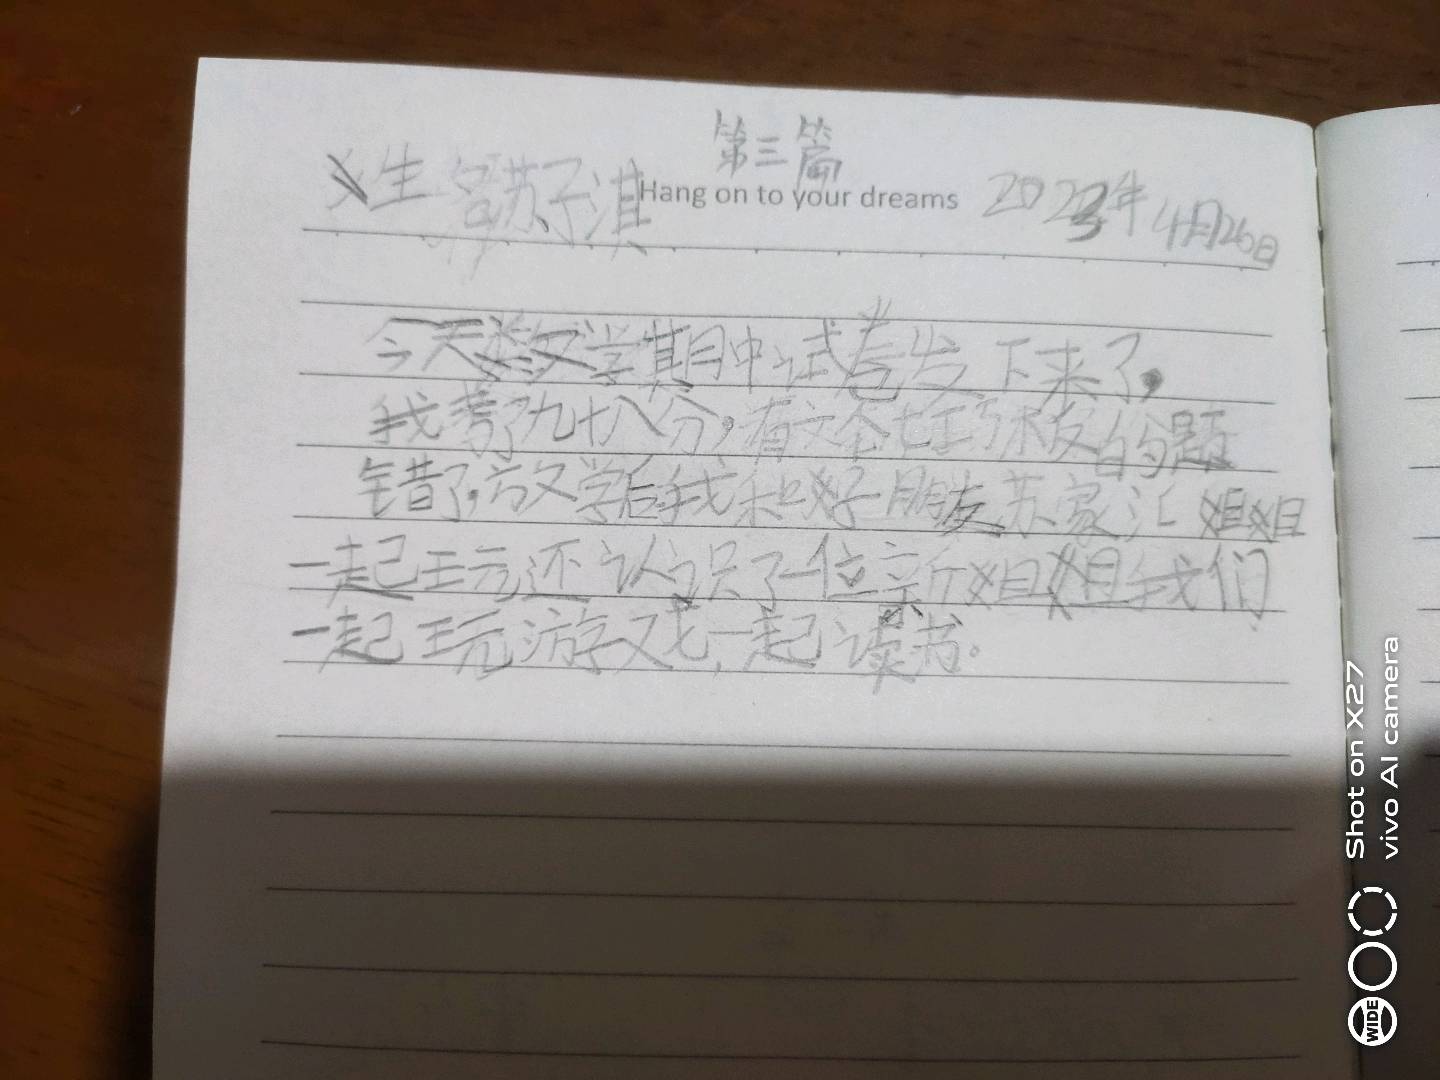 第三篇
姓名苏子淇
Hang on to your dreams
2023年4月26日
今天数学期中试卷发下来了,
我考了九十八分,有文本 的题
错了,放学后我和好朋友苏家汇姐姐
一起玩还认识了一位新姐姐我们
一起玩游戏,一起读书。
Shot on X27
vivo AI camera
WIDE